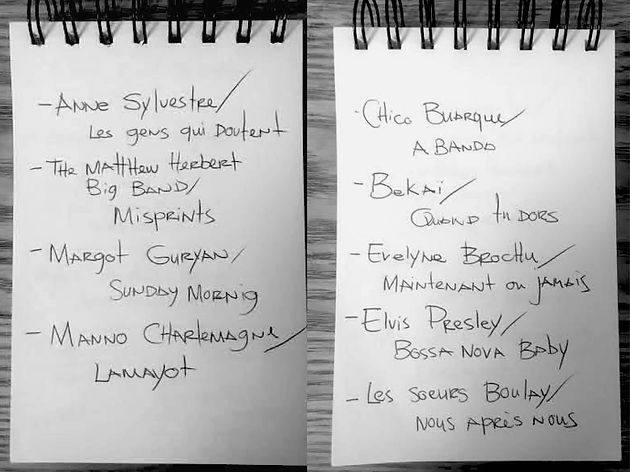 - Anne Sylvestre/
Les gens qui doutent
- The Matthew Herbert
Big Band/
Misprints
- Margot Guryan/
Sunday Mornig
- Manno Charlemagne/
Lamayot
- Chico Buarque/
A Banda
- Bekaï/
Quand tu dors
- Evelyne Brochu/
Maintenant ou jamais
- Elvis Presley/
Bossa Nova Baby
- Les soeurs Boulay/
Nous après nous